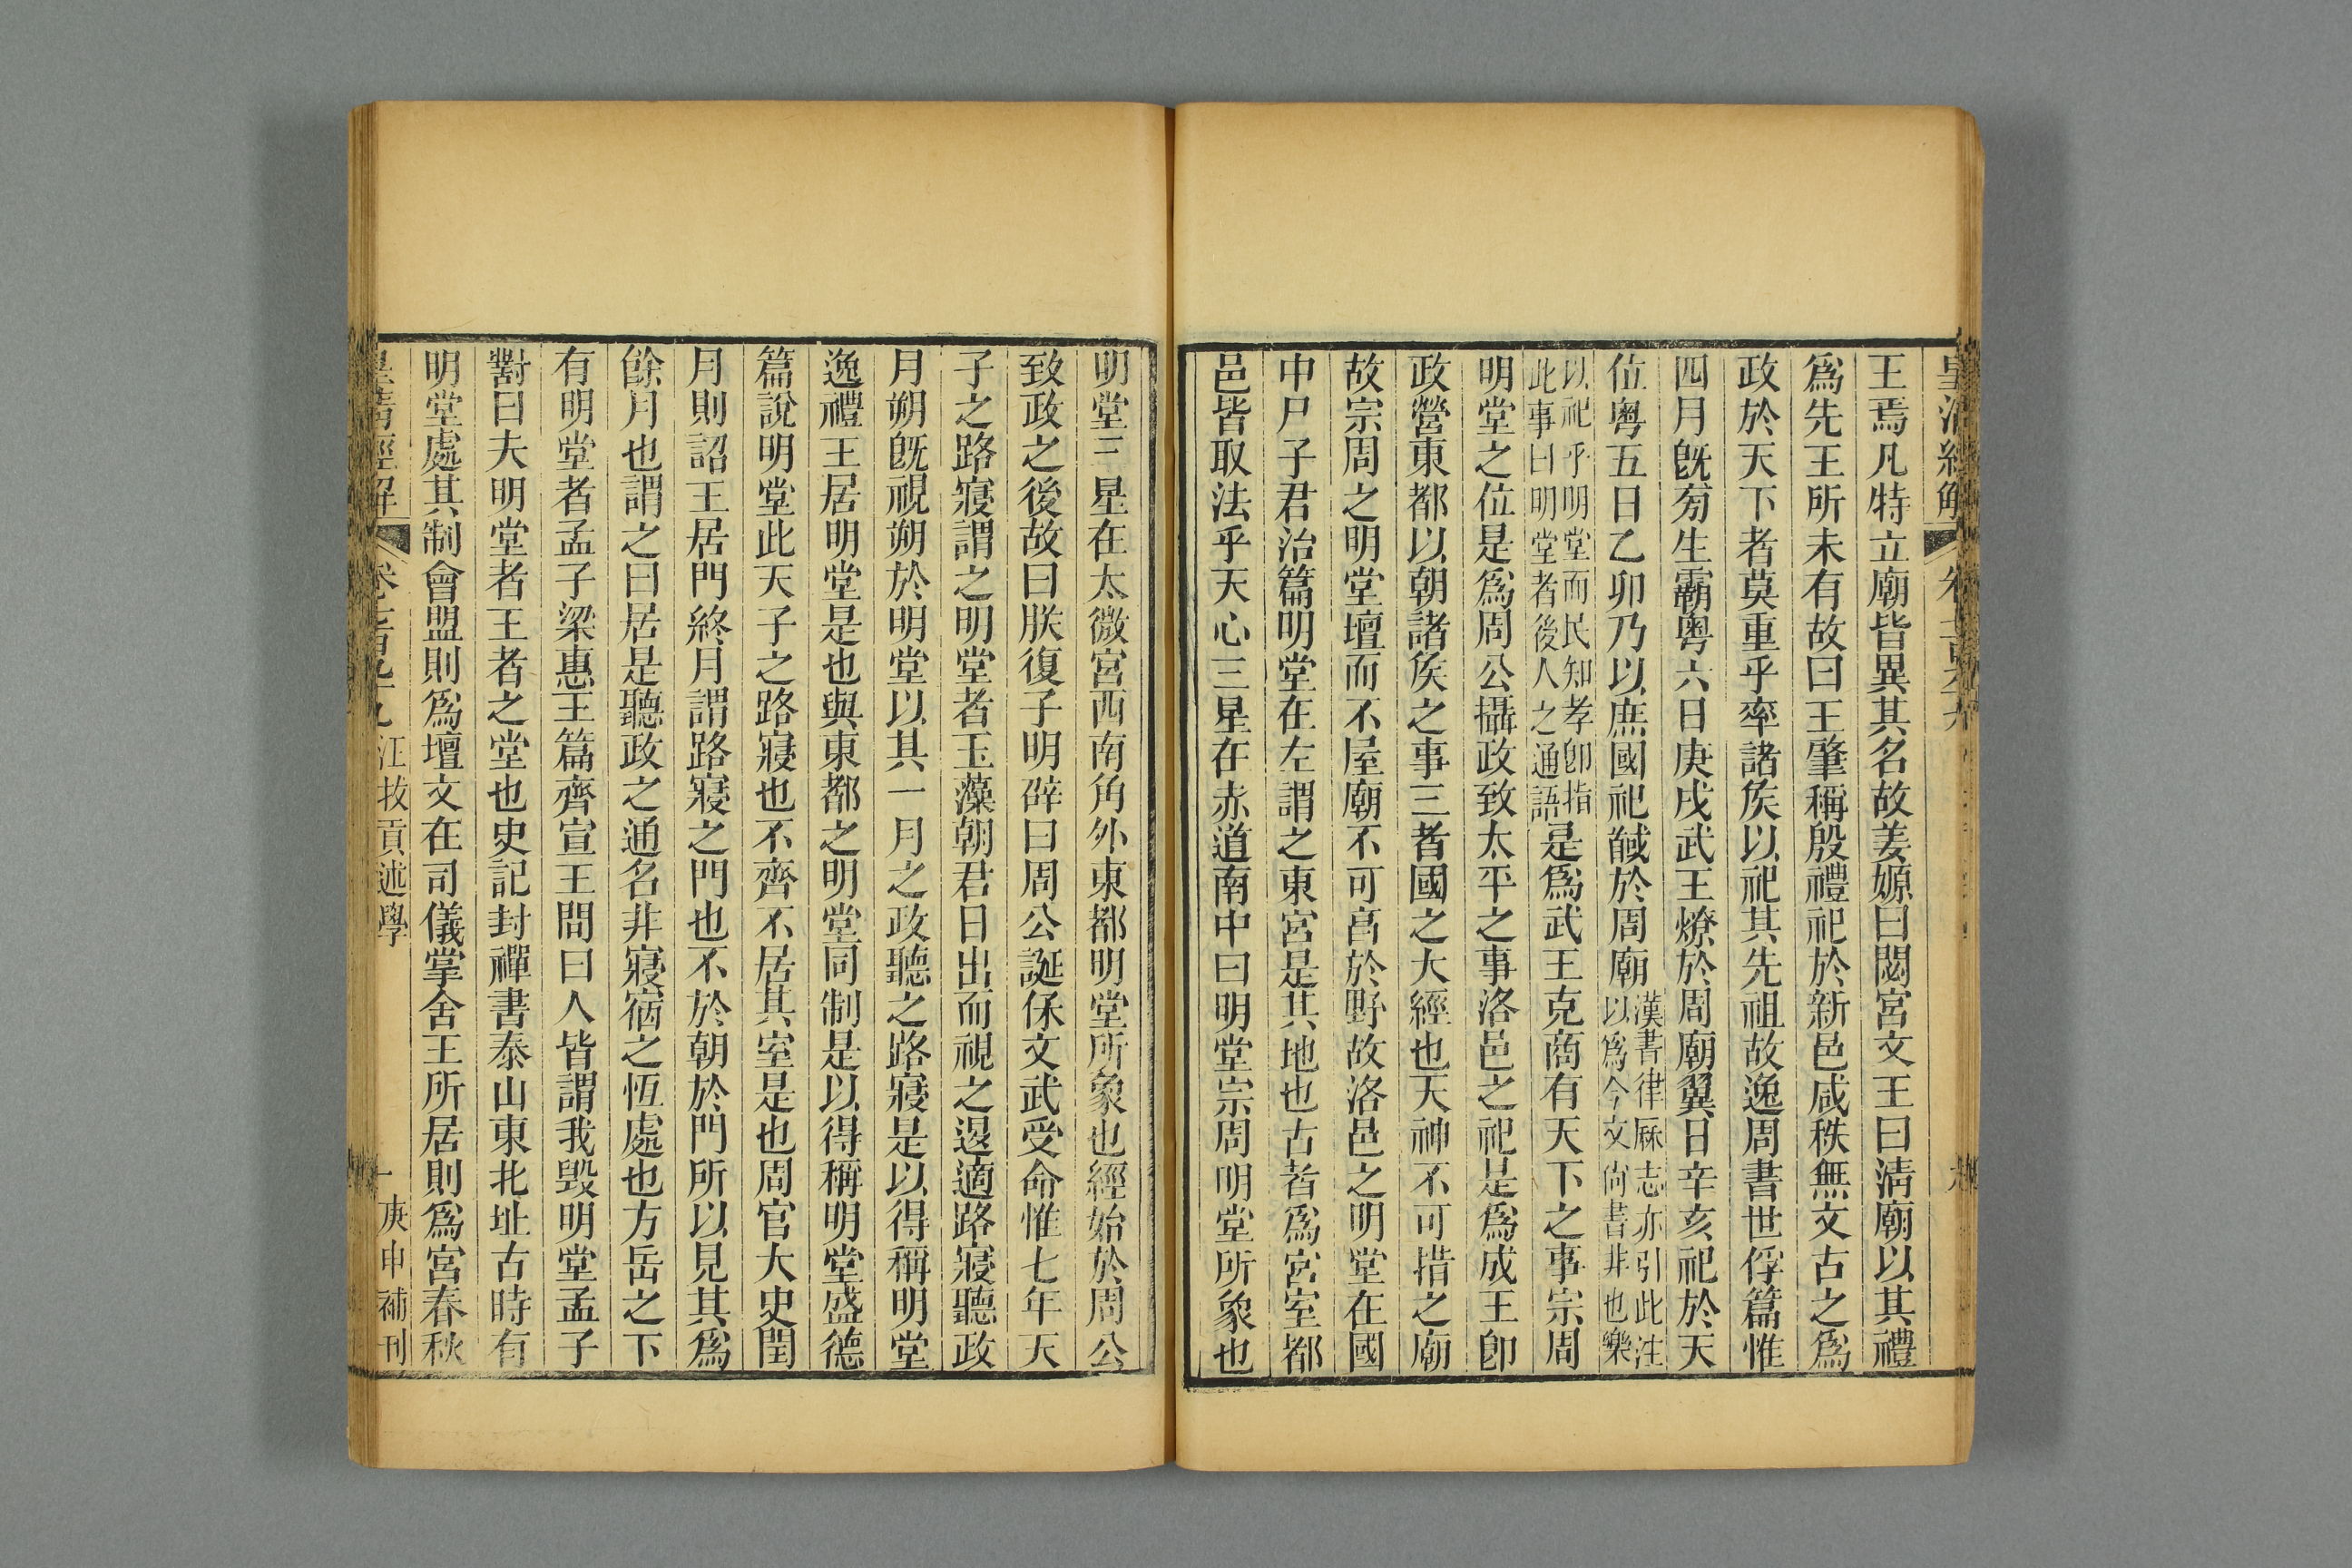 皇清經解
王焉凡特立廟皆異其名故姜嫄曰閟宮文王曰清廟以其禮
爲先王所未有故曰王肇稱殷禮祀於新邑咸秩無文古之爲
政於天下者莫重乎率諸矦以祀其先祖故逸周書世俘篇惟
四月旣旁生霸粤六日庚戌武王燎於周廟翼日辛亥祀於天
位粤五日乙卯乃以庶國祀馘於周廟漢書律厤志亦引此注
以爲今文尚書非也樂
以祀乎明堂而民知孝卽指
此事曰明堂者後人之通語是爲武王克商有天下之事宗周
明堂之位是爲周公攝政致太平之事洛邑之祀是爲成王卽
政營東都以朝諸矦之事三者國之大經也天神不可措之廟
故宗周之明堂壇而不屋廟不可爲於野故洛邑之明堂在國
中尸子君治篇明堂在左謂之東宮是其地也古者爲宮室都
邑皆取法乎天心三星在赤道南中曰明堂宗周明堂所象也
明堂三星在太微宮西南角外東都明堂所象也經始於周公
致政之後故曰朕復子明辟曰周公誕保文武受命惟七年天
子之路寢謂之明堂者玉藻朝君日出而視之退適路寢聽政
月朔旣視朔於明堂以其一月之政聽之路寢是以得稱明堂
逸禮王居明堂是也與東都之明堂同制是以得稱明堂盛德
篇說明堂此天子之路寢也不齊不居其室是也周官大史閏
月則詔王居門終月謂路寢之門也不於朝於門所以見其爲
餘月也謂之曰居是聽政之通名非寢宿之恆處也方岳之下
有明堂者孟子梁惠王篇齊宣王問曰人皆謂我毀明堂孟子
對曰夫明堂者王者之堂也史記封禪書泰山東北址古時有
明堂處其制會盟則爲壇文在司儀掌舍王所居則爲宮春秋
皇清經解 卷七百九十九 江拔貢述學 一 庚申補刊